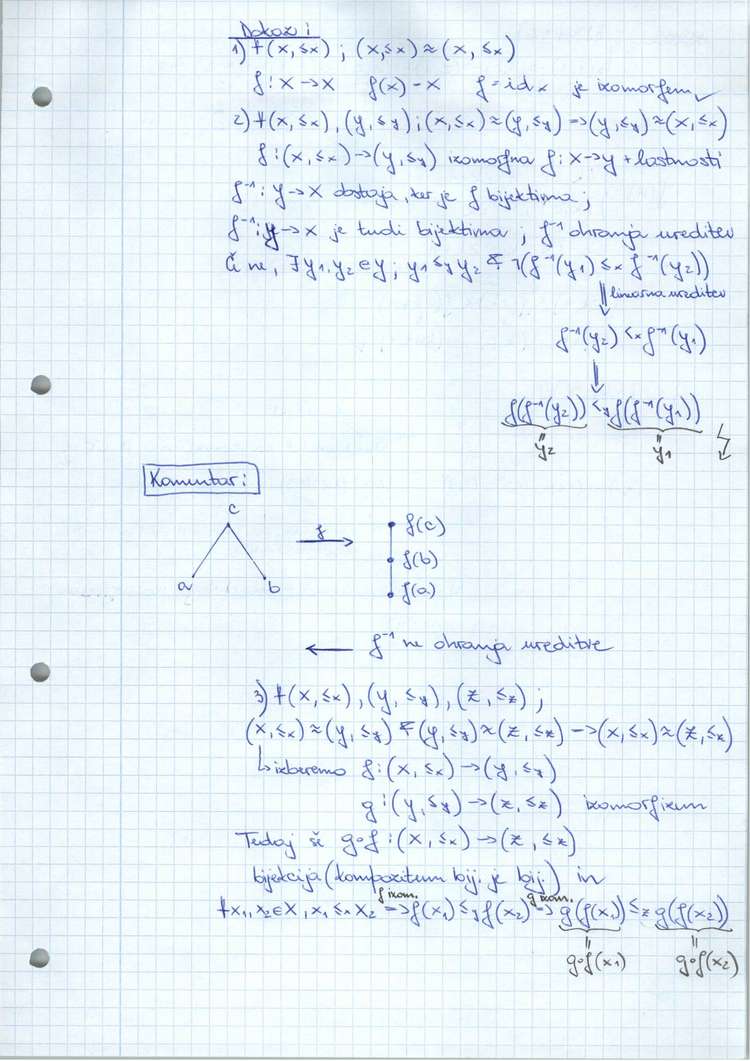 Dokaz:
1) ∀(X, ≤x) ; (X, ≤x) ≈ (X, ≤x)
f: X → X   f(x) = x   f = id x   je izomorfem ✓
2) ∀(X, ≤x), (Y, ≤y) ; (X, ≤x) ≈ (Y, ≤y) ⇒ (Y, ≤y) ≈ (X, ≤x)
f: (X, ≤x) → (Y, ≤y) izomorfna f: X → Y + lastnosti
f⁻¹: Y → X obstaja, ker je f bijektivna ;
f⁻¹: Y → X je tudi bijektivna ; f⁻¹ ohranja ureditev
Če ne, ∃ y1, y2 ∈ Y ; y1 ≤y y2 & ¬(f⁻¹(y1) ≤x f⁻¹(y2))
⇓ linearna ureditev
f⁻¹(y2) <x f⁻¹(y1)
⇓
f(f⁻¹(y2)) <y f(f⁻¹(y1))
=
y2   y1 ↯
Komentar:
c
a   b
f →
f(c)
f(b)
f(a)
← f⁻¹ ne ohranja ureditve
3) ∀(X, ≤x), (Y, ≤y), (Z, ≤z) ;
(X, ≤x) ≈ (Y, ≤y) & (Y, ≤y) ≈ (Z, ≤z) → (X, ≤x) ≈ (Z, ≤z)
↳ izberemo f: (X, ≤x) → (Y, ≤y)
g: (Y, ≤y) → (Z, ≤z) izomorfizem
Tedaj še g∘f : (X, ≤x) → (Z, ≤z)
bijekcija (kompozitum bij. je bij.) in
f izom.   g izom.
∀x1, x2 ∈ X, x1 ≤x x2 ⇒ f(x1) ≤y f(x2) ⇒ g(f(x1)) ≤z g(f(x2))
=   =
g∘f(x1)   g∘f(x2)